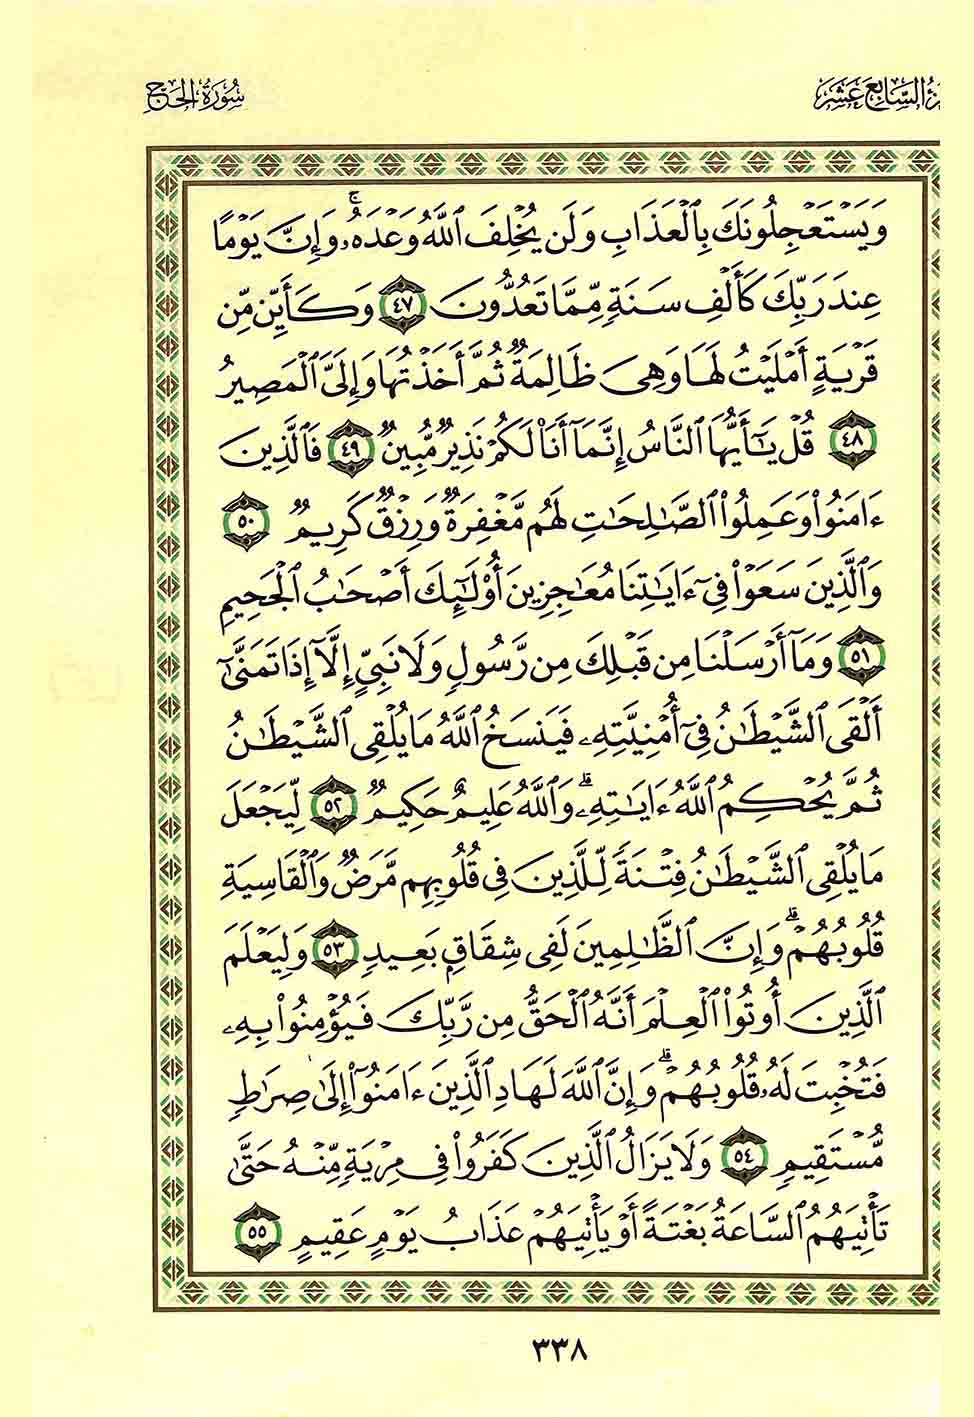 ـزءُ السَّابِعَ عَشَرَ
سُورَةُ الحَجّ
وَيَسْتَعْجِلُونَكَ بِٱلْعَذَابِ وَلَن يُخْلِفَ ٱللَّهُ وَعْدَهُۥۚ وَإِنَّ يَوْمًا
عِندَ رَبِّكَ كَأَلْفِ سَنَةٍ مِّمَّا تَعُدُّونَ ٤٧ وَكَأَيِّن مِّن
قَرْيَةٍ أَمْلَيْتُ لَهَا وَهِىَ ظَالِمَةٌ ثُمَّ أَخَذْتُهَا وَإِلَىَّ ٱلْمَصِيرُ
٤٨ قُلْ يَـٰٓأَيُّهَا ٱلنَّاسُ إِنَّمَآ أَنَا۠ لَكُمْ نَذِيرٌ مُّبِينٌ ٤٩ فَٱلَّذِينَ
ءَامَنُوا۟ وَعَمِلُوا۟ ٱلصَّـٰلِحَـٰتِ لَهُم مَّغْفِرَةٌ وَرِزْقٌ كَرِيمٌ ٥٠
وَٱلَّذِينَ سَعَوْا۟ فِىٓ ءَايَـٰتِنَا مُعَـٰجِزِينَ أُو۟لَـٰٓئِكَ أَصْحَـٰبُ ٱلْجَحِيمِ
٥١ وَمَآ أَرْسَلْنَا مِن قَبْلِكَ مِن رَّسُولٍ وَلَا نَبِىٍّ إِلَّآ إِذَا تَمَنَّىٰٓ
أَلْقَى ٱلشَّيْطَـٰنُ فِىٓ أُمْنِيَّتِهِۦ فَيَنسَخُ ٱللَّهُ مَا يُلْقِى ٱلشَّيْطَـٰنُ
ثُمَّ يُحْكِمُ ٱللَّهُ ءَايَـٰتِهِۦۗ وَٱللَّهُ عَلِيمٌ حَكِيمٌ ٥٢ لِّيَجْعَلَ
مَا يُلْقِى ٱلشَّيْطَـٰنُ فِتْنَةً لِّلَّذِينَ فِى قُلُوبِهِم مَّرَضٌ وَٱلْقَاسِيَةِ
قُلُوبُهُمْۗ وَإِنَّ ٱلظَّـٰلِمِينَ لَفِى شِقَاقٍۭ بَعِيدٍ ٥٣ وَلِيَعْلَمَ
ٱلَّذِينَ أُوتُوا۟ ٱلْعِلْمَ أَنَّهُ ٱلْحَقُّ مِن رَّبِّكَ فَيُؤْمِنُوا۟ بِهِۦ
فَتُخْبِتَ لَهُۥ قُلُوبُهُمْۗ وَإِنَّ ٱللَّهَ لَهَادِ ٱلَّذِينَ ءَامَنُوٓا۟ إِلَىٰ صِرَٰطٍ
مُّسْتَقِيمٍ ٥٤ وَلَا يَزَالُ ٱلَّذِينَ كَفَرُوا۟ فِى مِرْيَةٍ مِّنْهُ حَتَّىٰ
تَأْتِيَهُمُ ٱلسَّاعَةُ بَغْتَةً أَوْ يَأْتِيَهُمْ عَذَابُ يَوْمٍ عَقِيمٍ ٥٥
٣٣٨